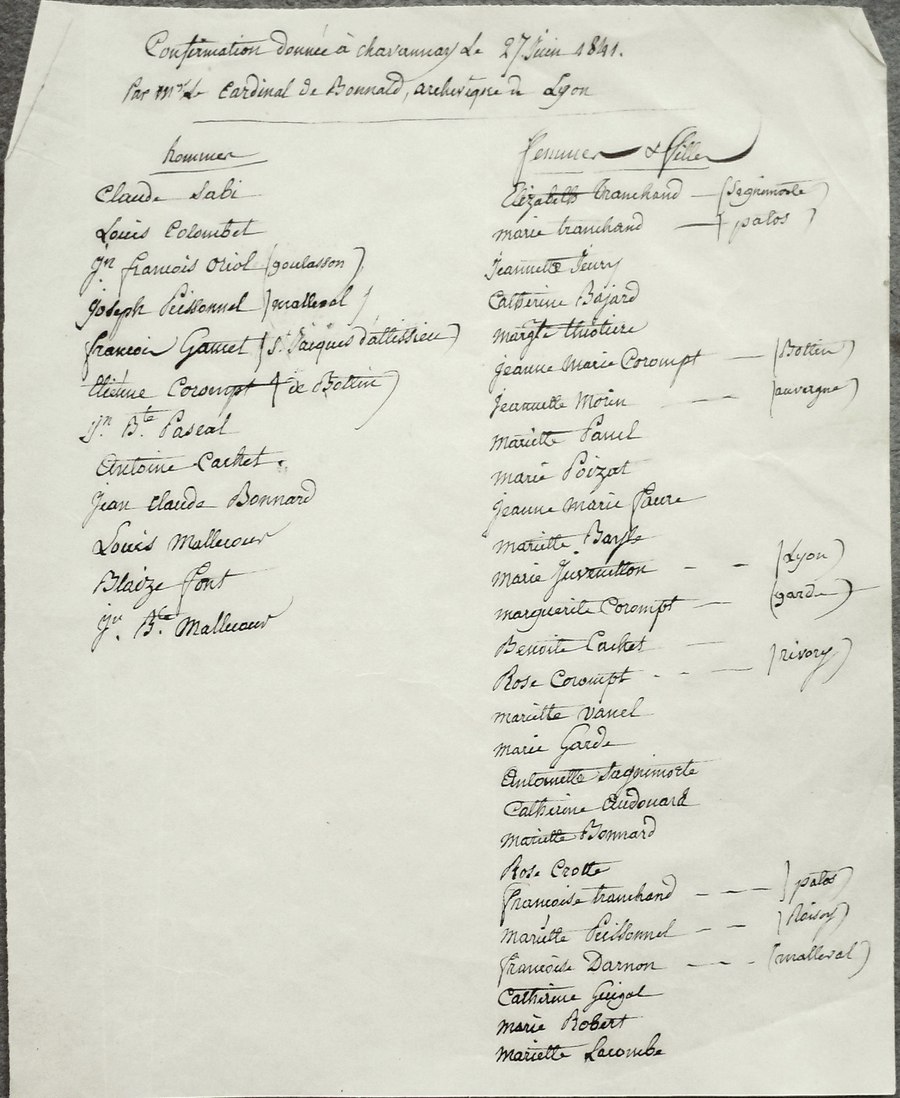 Confirmation donnée à chavannay Le 27 Juin 1841.
Par Mgr Le Cardinal de Bonnald, archevêque de Lyon
hommes
Claude Sabi
Louis Colombet
Jn françois Oriol (goulasson)
Joseph Peissonnel (malleval)
françois Gamet (St Jacques d'atissieu)
Etiénne Corompt (de Bottin)
Jn Bte Pascal
Antoine Cachet.
Jean Claude Bonnard
Louis Mallecour
Blaize font
Jn Bte Mallecour
femmes & filles
Elizabeth tranchand — (Sagnimorte)
marie tranchand — (palos)
Jeannette Jeury
Catherine Bajard
margte thiotiere
jeanne Marie Corompt — (Bottin)
Jeannette Morin — - (auvergne)
Mariette Panel
marie Poizat
jeanne Marie faure
Mariette Bayle
Marie Juvenitton - - (Lyon)
marguerite Corompt — (garde)
Benoite Cachet —
Rose Corompt - - — (rivory)
mariette vanel
marie Garde
Antoinette Sagnimorte
Catherine Audouard
Mariette Bonnard
Rose Crotte
françoise tranchand — — — (palos)
Mariette Peissonnel — — (Roisey)
françoise Darnon — — - (malleval)
Catherine Guigal
Marie Robert
Mariette Lacombe